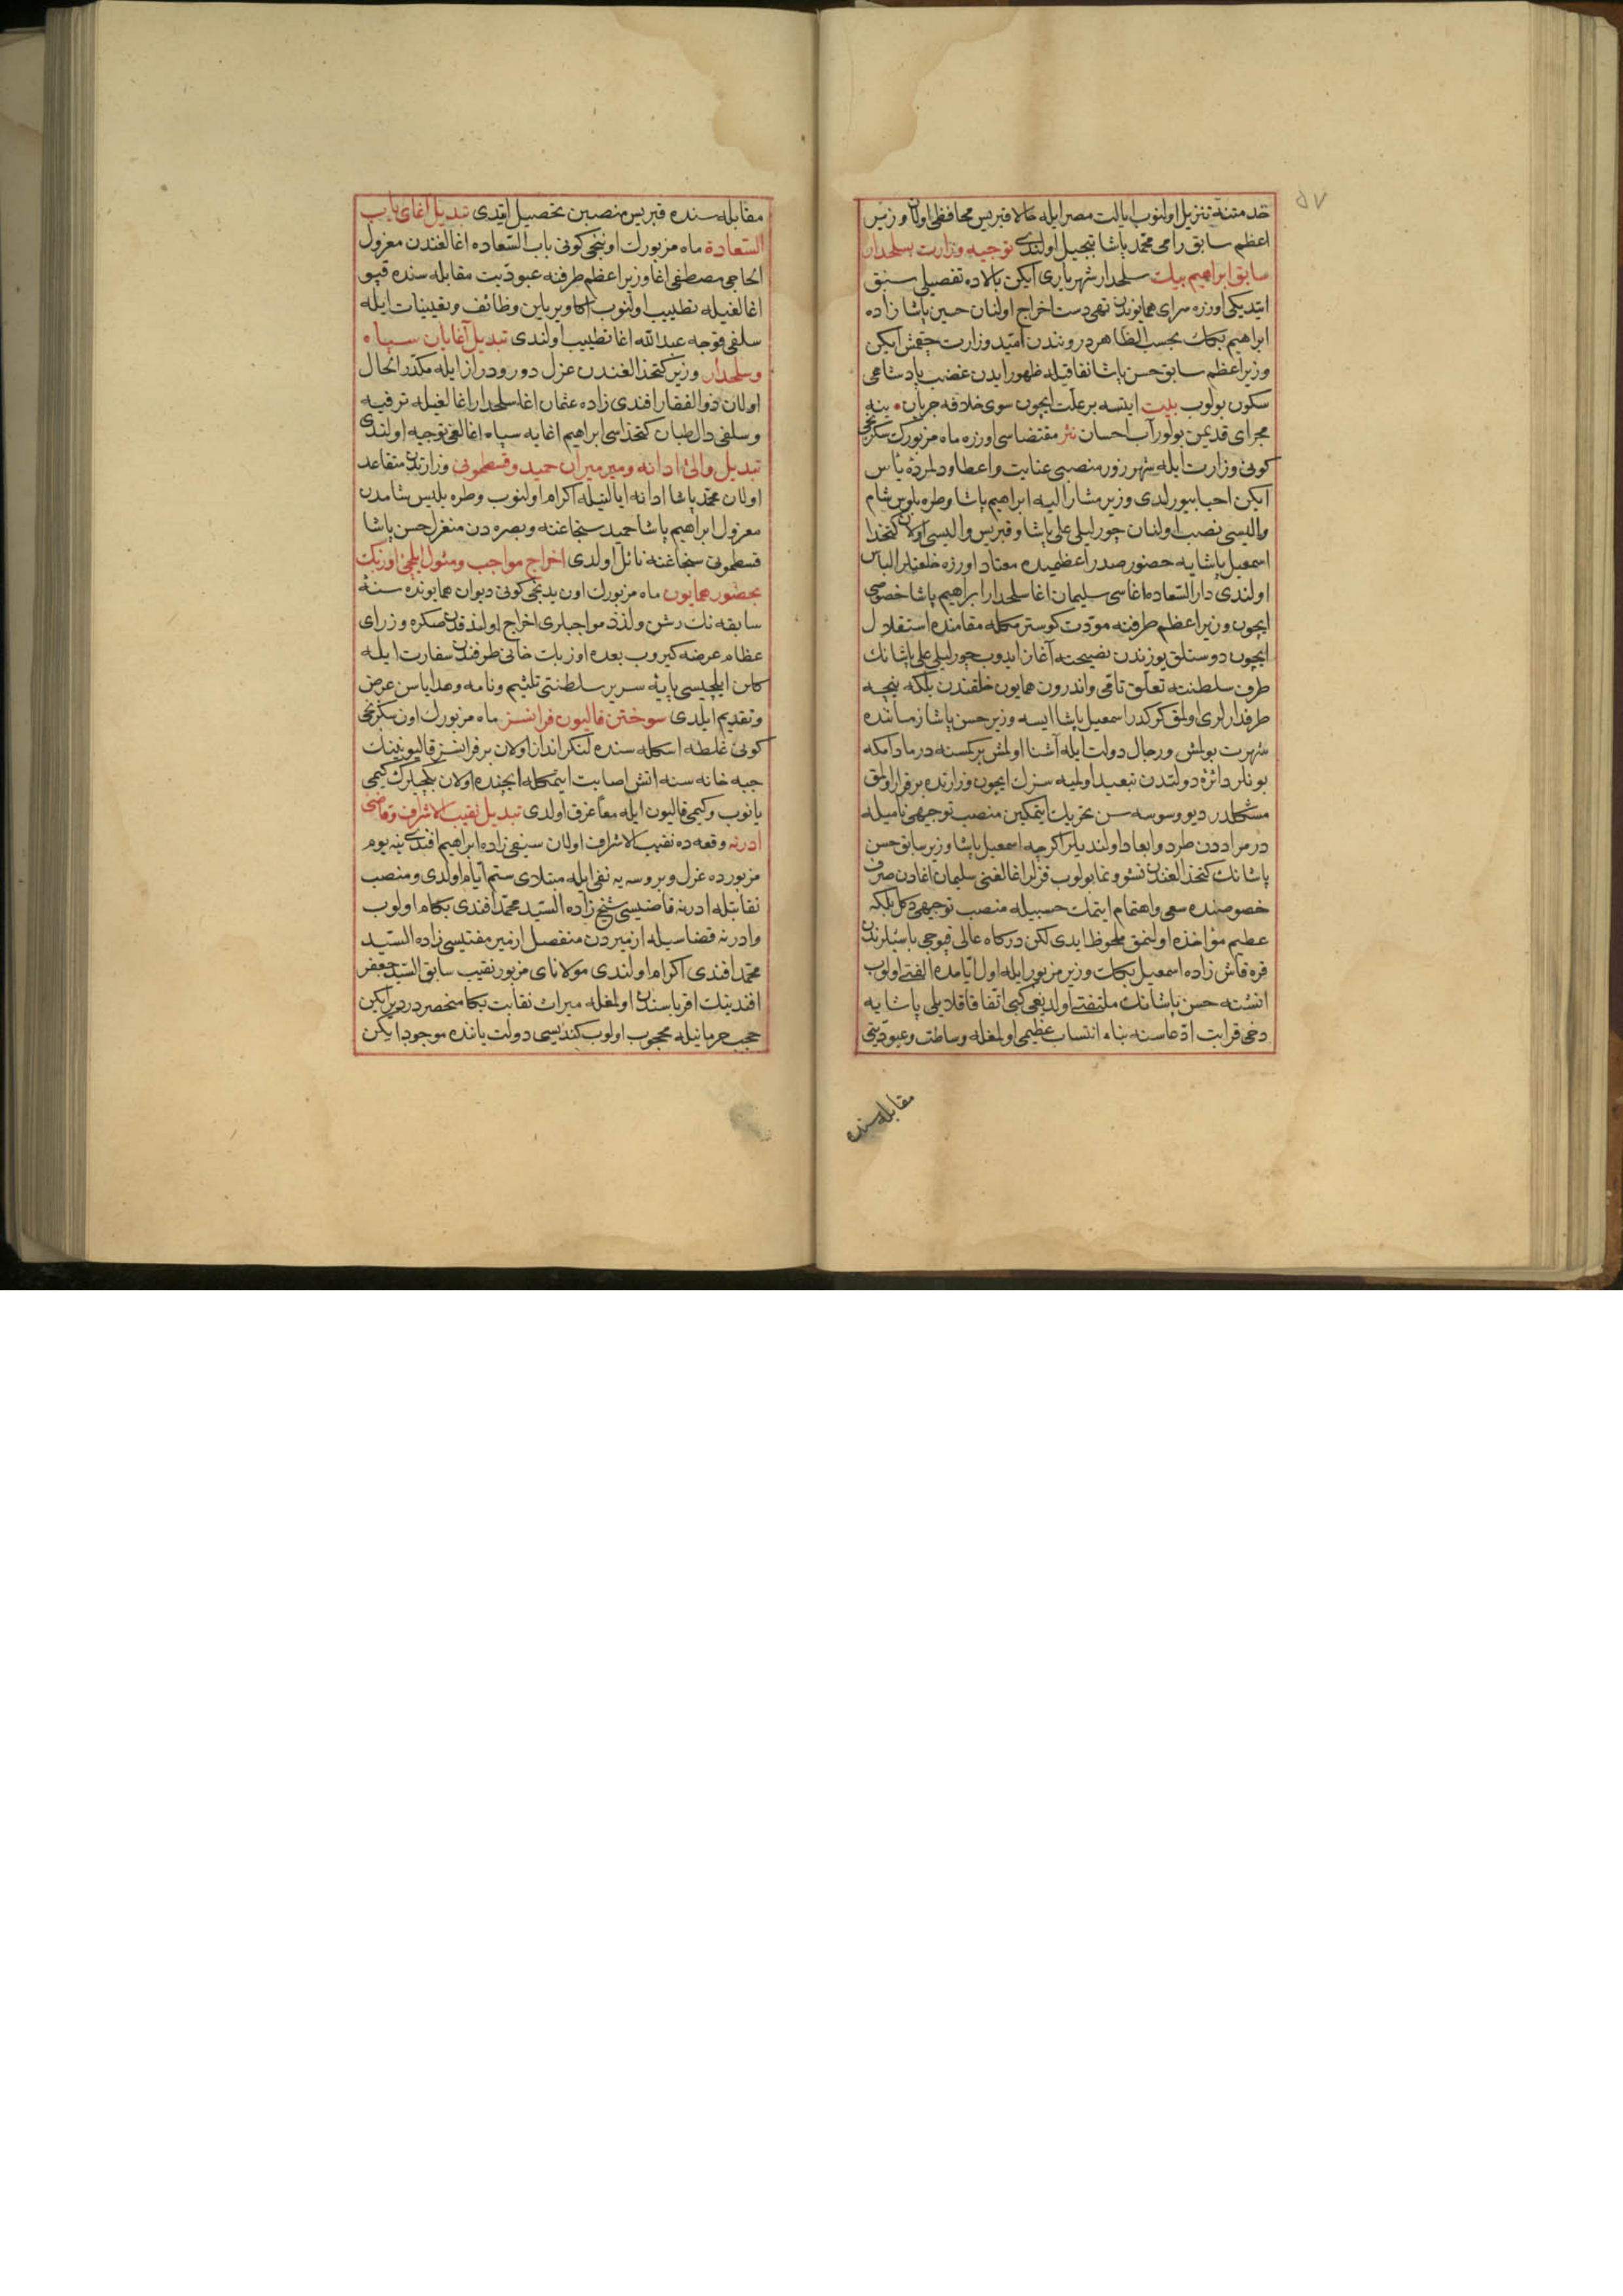 ٥٧
خدمتنه تنزیل اولنوب ایالت مصر ایله حالا قبریس محافظی اولان وزیر
اعظم سابق رامی محمد پاشا تبجیل اولندی توجیه وزارت بسلحدار
سابق ابراهیم بیك سلحدار شهریاری ایکن بالاده تفصیلی سبق
ایتدیکی اوزره سرای همایوندن تهی دست اخراج اولنان حسین پاشا زاده
ابراهیم بکك بحسب الظاهر دروندن امید وزارت چقمش ایکن
وزیر اعظم سابق حسن پاشا نفاقیله ظهور ایدن غضب پادشاهی
سکون بولوب بیت ایتسه بر علت ایچون سوی خلافه جریان ینه
مجرای قدیمن بولور آب احسان نثر مقتضاسی اوزره ماه مزبورك سکزنجی
کونی وزارت ایله شهرزور منصبی عنایت واعطا و دلمردهٔ یأس
ایکن احیا بیورلدی وزیر مشار الیه ابراهیم پاشا وطره بلوس شام
والیسی نصب اولنان چورلیلی علی پاشا و قبریس والیسی اولان کتخدا
اسمعیل پاشایه حضور صدر اعظمیده معتاد اوزره خلعتلر الباس
اولندی دار السعاده اغاسی سلیمان اغا سلحدار ابراهیم پاشا خصوصی
ایچون وزیر اعظم طرفنه مودت کوسترمکله مقامنده استقلال
ایچون دوستلق یوزندن نصیحته آغاز ایدوب چورلیلی علی پاشانك
طرف سلطنته تعلق تامی واندرون همایون خلقندن بلکه نیچه
طرفدارلری اولمق کرکدر اسمعیل پاشا ایسه وزیر حسن پاشا زماننده
شهرت بولمش ورجال دولت ایله آشنا اولمش بر کمسنه در مادامکه
بونلر دائرهٔ دولتدن تبعید اولمیه سزك ایچون وزارتده برقرار اولمق
مشکلدر دیو وسوسه سن تحریك ایتمکین منصب توجیهی نامیله
در مراددن طرد وابعاد اولندیلر اکرچه اسمعیل پاشا وزیر سابق حسن
پاشانك کتخدالغندن نشو و نما بولوب قزلر اغالغنی سلیمان اغادن صرف
خصوصنده سعی واهتمام ایتمك حسبیله منصب توجیهی دکل بلکه
عظیم مؤاخذه اولنمق ملحوظ ایدی لکن درکاه عالی قپوجی باشیلرندن
قره قاش زاده اسمعیل بکك وزیر مزبور ایله اول ایامده الفتی اولوب
انشته حسن پاشانك ملتفتی اولدیغی کبی اتفاقا قلایلی پاشایه
دخی قرابت ادعاسنه بناء انتساب عظیمی اولمغله وساطت وعبودیتی
مقابله سنده
مقابله سنده قبریس منصبین تحصیل ایتدی تبدیل اغای باب
السعادة ماه مزبورك اوننجی کونی باب السعاده اغالغندن معزول
الحاجی مصطفی اغا وزیر اعظم طرفنه عبودیت مقابله سنده قپو
اغالغیله تطییب اولنوب اکا ویریلین وظائف و تعیینات ایله
سلفی قوجه عبد الله اغا تطییب اولندی تبدیل آغایان سپاه
وسلحدار وزیر کتخدالغندن عزل دور ودراز ایله مکدر الحال
اولان ذو الفقار افندی زاده عثمان اغا سلحدار اغالغیله ترفیه
وسلفی دالطبان کتخداسی ابراهیم اغایه سپاه اغالغی توجیه اولندی
تبدیل والئ ادانه ومیر میران حمید وقسطمونی وزارتدن متقاعد
اولان محمد پاشا ادانه ایالتیله اکرام اولنوب وطره بلیس شامدن
معزول ابراهیم پاشا حمید سنجاغنه وبصره دن منعزل حسن پاشا
قسطمونی سنجاغنه نائل اولدی اخراج مواجب ومثول ایلچئ اوزبك
بحضور همایون ماه مزبورك اون یدنجی کونی دیوان همایونده سنهٔ
سابقه نك رشن ولذذ مواجبلری اخراج اولندقدن صکره وزرای
عظام عرضه کیروب بعده اوزبك خانی طرفندن سفارت ایله
کلن ایلچیسی پایهٔ سریر سلطنتی تلثیم ونامه وهدایاسن عرض
وتقدیم ایلدی سوختن قالیون فرانسز ماه مزبورك اون سکزنجی
کونی غلطه اسکله سنده لنکر انداز اولان بر فرانسز قالیونینك
جبه خانه سنه اتش اصابت ایتمکله ایچنده اولان بکجیلرك کیمی
یانوب وکیمی قالیون ایله معاً غرق اولدی تبدیل نقیب الاشراف وقاضی
ادرنه وقعه ده نقیب الاشراف اولان سیفی زاده ابراهیم افندی ینه یوم
مزبورده عزل وبروسه یه نفی ایله مبتلای ستم ایام اولدی ومنصب
نقابتله ادرنه قاضیسی شیخ زاده السید محمد افندی بکام اولوب
وادرنه قضاسیله ازمیردن منفصل ازمیر مفتیسی زاده السید
محمد افندی اکرام اولندی مولانای مزبور نقیب سابق السید جعفر
افندینك اقرباسندن اولمغله میراث نقابت بکا منحصردر دیر ایکن
حجب حرمانیله محجوب اولوب کندیسی دولت یاننده موجود ایکن